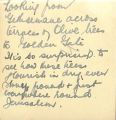 Looking from
Gethsemane across
terraces of Olive trees
to Golden Gate
It is so surprising to
see how these trees
flourish in dry even
stoney ground & just
everywhere around
Jerusalem.